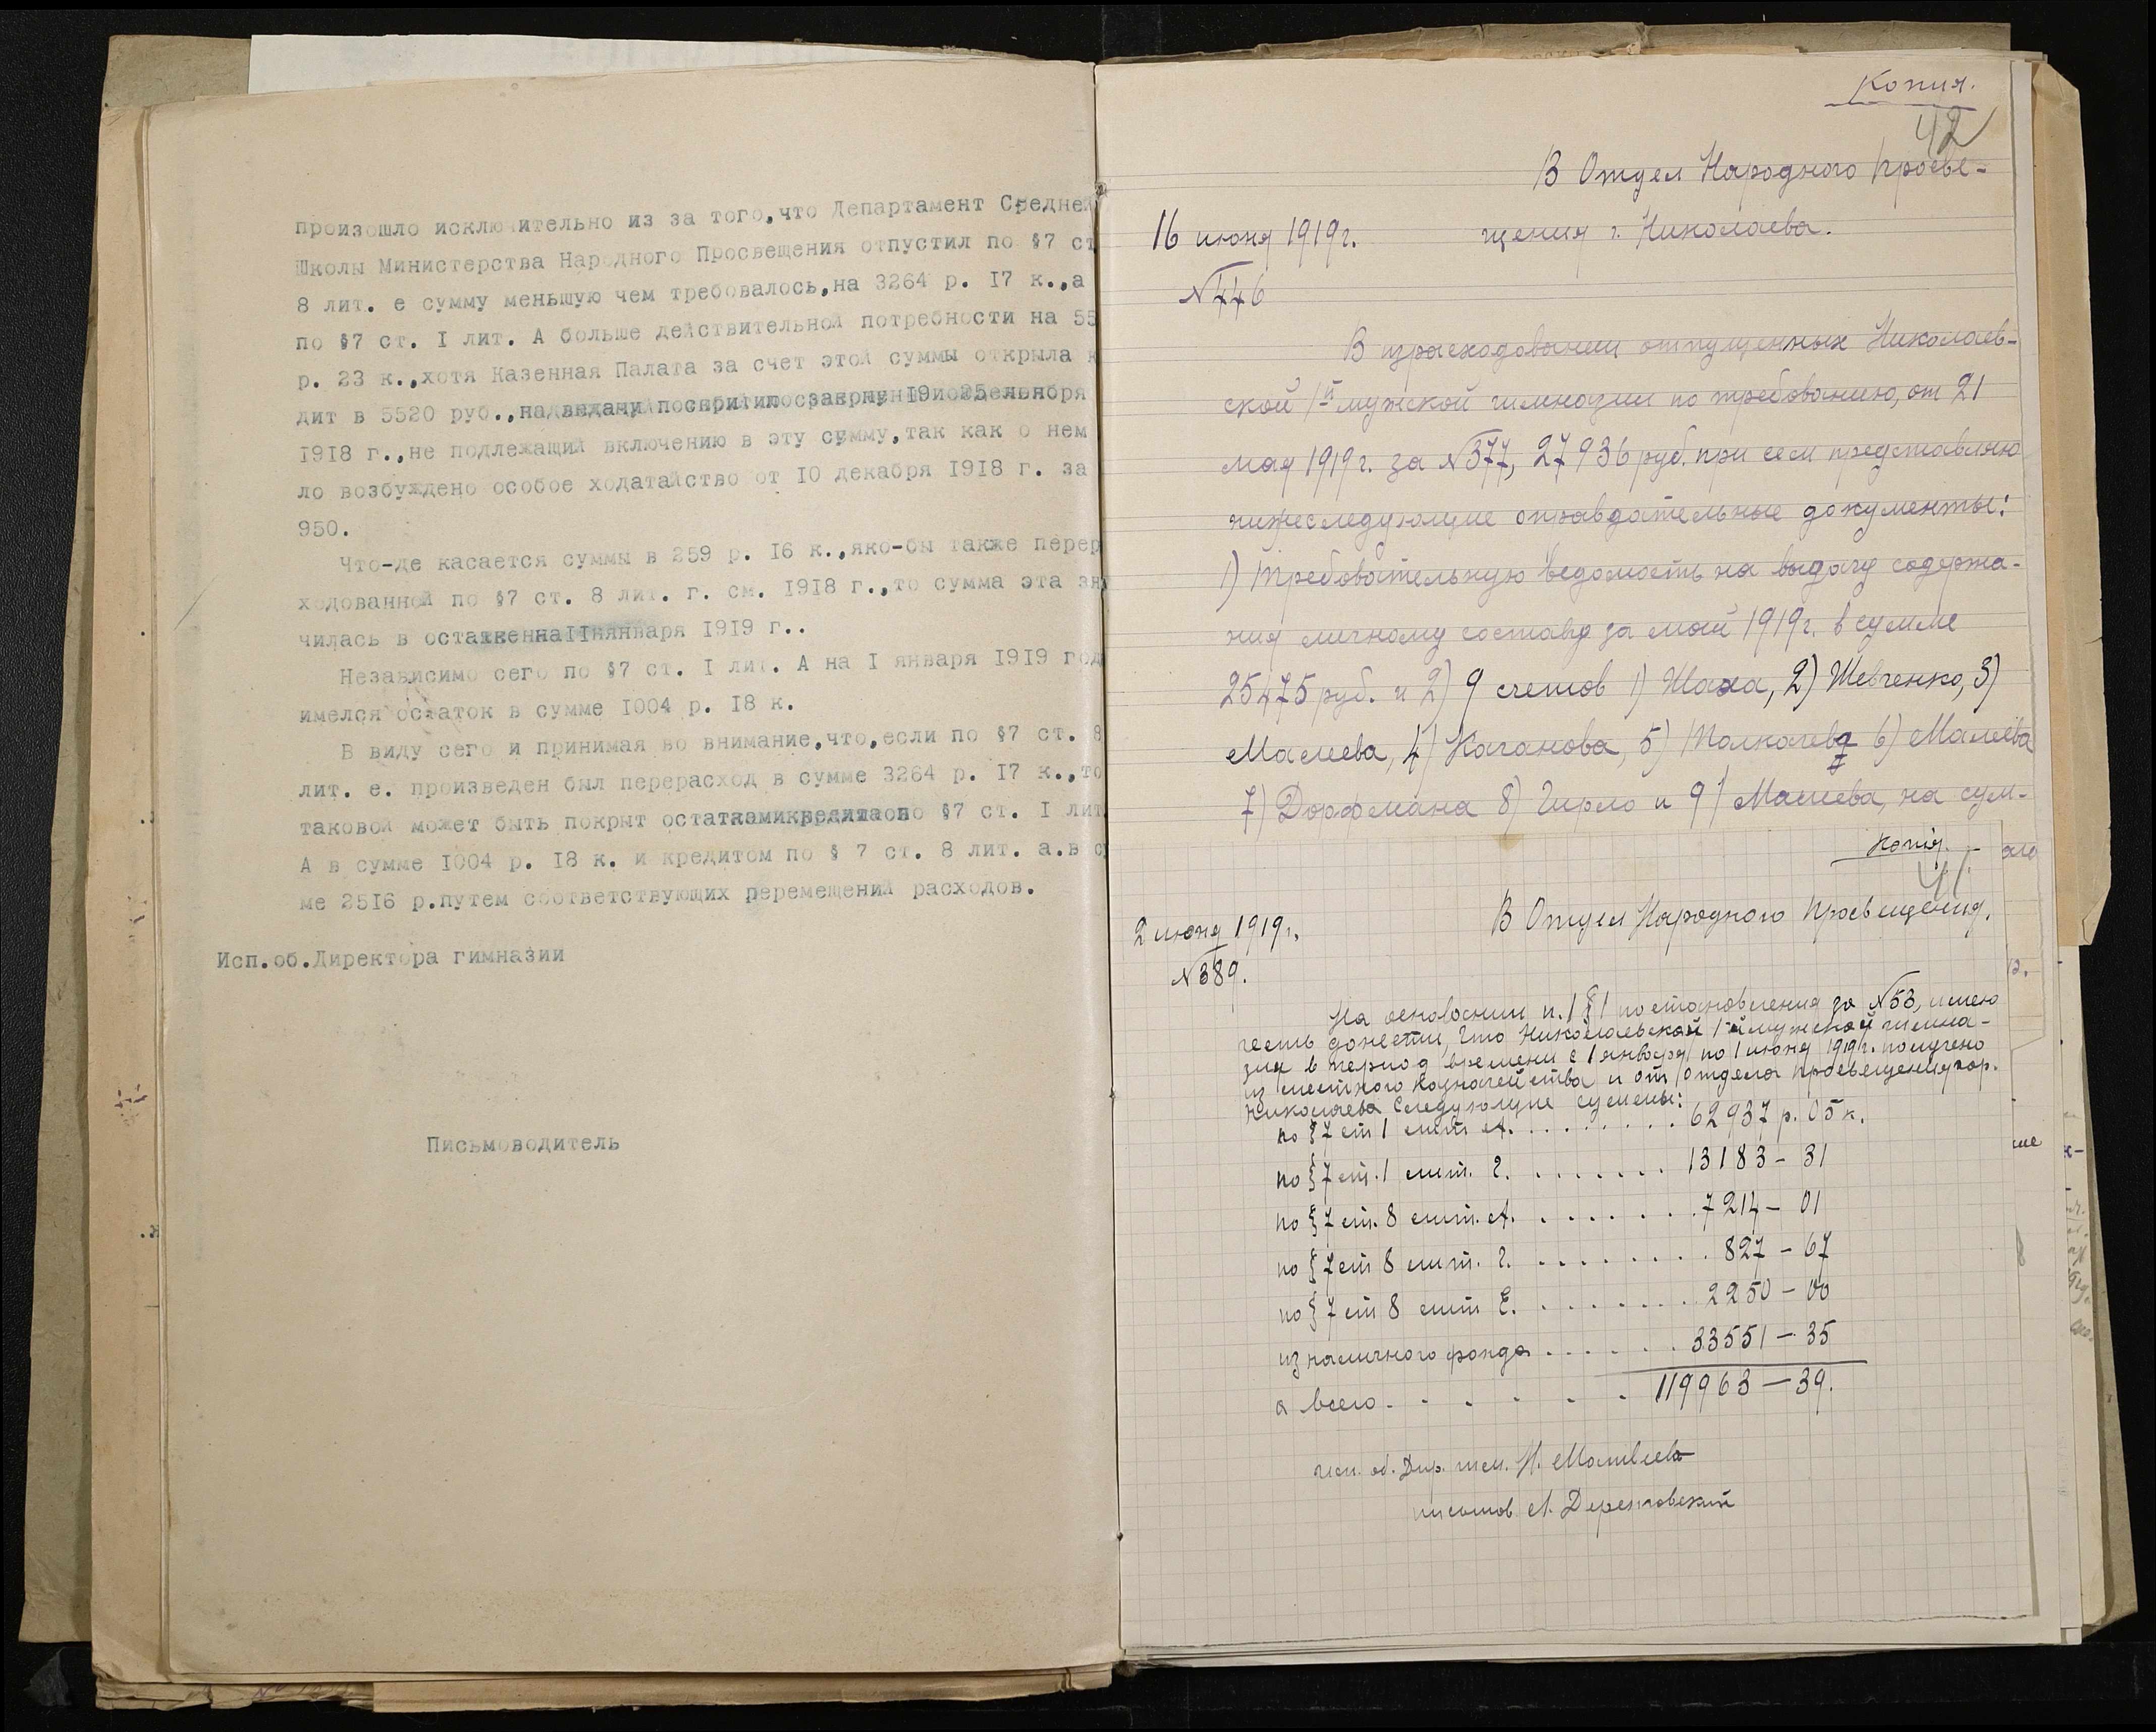 произошло исключительно из за того,что Департамент Средней
Школы Министерства Народного Просвещения отпустил по §7 ст
8 лит. е сумму меньшую чем требовалось,на 3264 р. I7 к.,а
по §7 ст. I лит. А больше действительной потребности на 55
р. 23 к.,хотя Казенная Палата за счет этой суммы открыла к
дит в 5520 руб.,
I9I8 г.,не подлежащий включению в эту сумму,так как о нем
ло возбуждено особое ходатайство от I0 декабря I9I8 г. за
950.
Что-де касается суммы в 259 р. I6 к.,яко-бы также перер
ходованной по §7 ст. 8 лит. г. см. I9I8 г.,то сумма эта зн
чилась в остатке на I января I9I9 г..
Независимо сего по §7 ст. I лит. А на I января I9I9 год
имелся остаток в сумме I004 р. I8 к.
В виду сего и принимая во внимание,что,если по §7 ст. 8
лит. е. произведен был перерасход в сумме 3264 р. I7 к.,то
таковой может быть покрыт по §7 ст. I лит.
А в сумме I004 р. I8 к. и кредитом по § 7 ст. 8 лит. а.в су
ме 25I6 р.путем соответствующих перемещений расходов.
Исп.об.Директора гимназии
Письмоводитель
Копия.
42
В Отдел Народного Просве-
щения г. Николаева.
16 июня 1919г.
№446
В израсходовании отпущенных Николаев-
ской 1й мужской гимназии по требованию, от 21
мая 1919г. за №377, 27936 руб. при сем представляю
нижеследующие оправдательные документы:
1) Требовательную ведомость на выдачу содержа-
ния личному составу за май 1919г. в сумме
25475 руб. и 2) 9 счетов 1) Шаха, 2) Шевченко, 3)
Малеева, 4) Каганова, 5) Толкачева 6) Малеева
7) Дорфмана 8) Гирло и 9) Малеева, на сум-
Копия.
41.
2 июня 1919г.
В Отдел Народного Просвещения.
№389.
На основании п.1 §1 постановления за №53, имею
честь донести, что Николаевской 1-й мужской гимна-
зии в период времени с 1 января по 1 июня 1919г. получено
из местного Казначейства и от Отдела Просвещения гор.
Николаева следующие суммы:
по §7 ст 1 лит А. . . . . . . . . 62937 р. 05 к.
по §7 ст. 1 лит. г. . . . . . . . 13183 – 31
по §7 ст. 8 лит. А. . . . . . . . 7214 – 01
по §7 ст 8 лит. г. . . . . . . . 827 – 67
по §7 ст 8 лит Е. . . . . . . . 2250 – 00
из наличного фонда . . . . . . 33551 – 35
а всего . . . . . . 119963 – 39.
исп. об. Дир. гим. Н. Матвеев
письмов А.